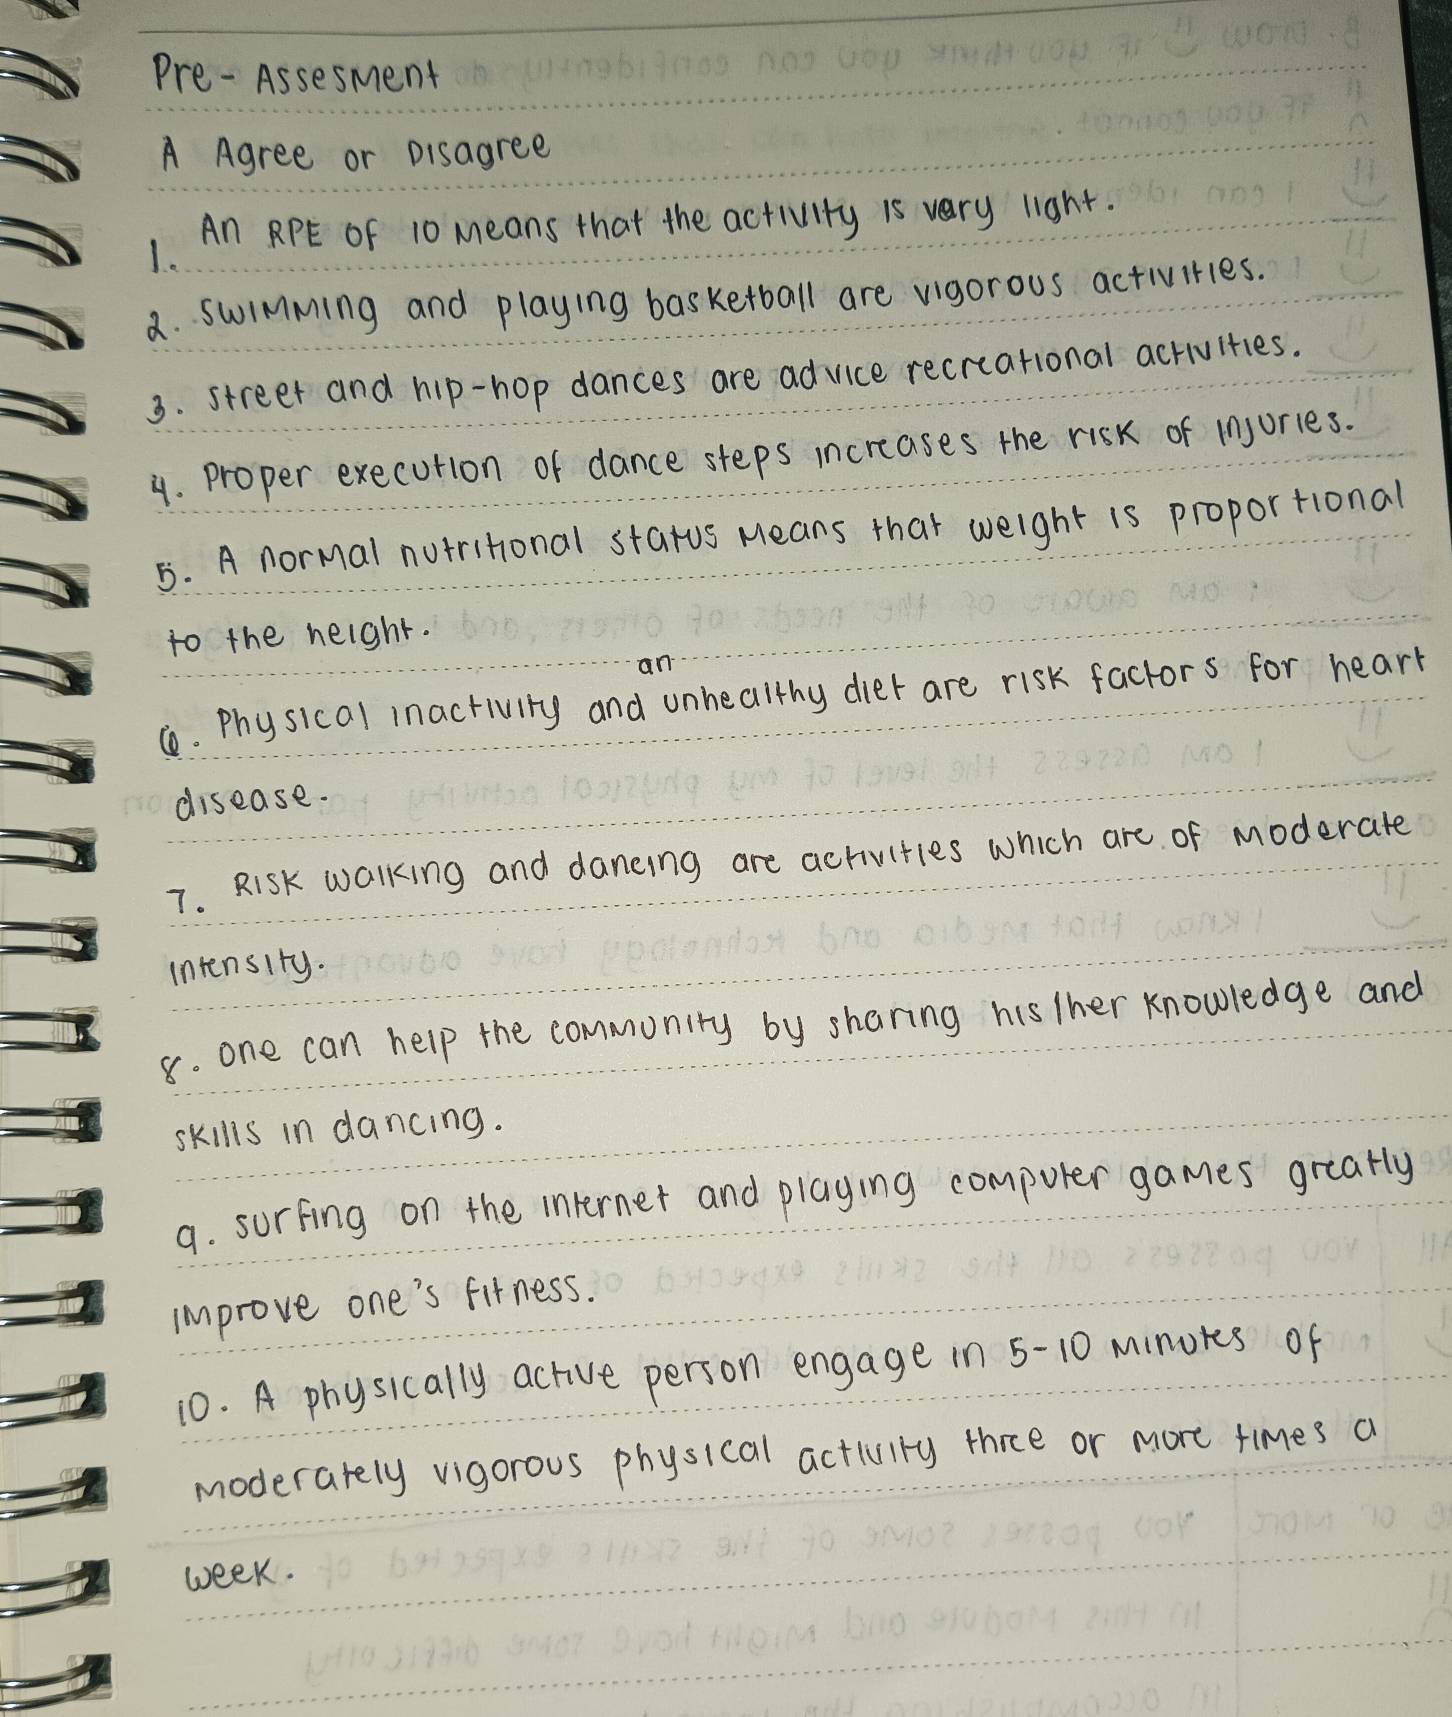 Pre-Assesment
A Agree or Disagree
1. An RPE of 10 means that the activity is very light.
2. swimming and playing basketball are vigorous activities.
3. street and hip-hop dances are advice recreational activities.
4. proper execution of dance steps increases the risk of injuries.
5. A normal nutritional status means that weight is proportional
to the height.
6. Physical inactivity and an unhealthy diet are risk factors for heart
disease.
7. Risk walking and dancing are activities which are of moderate
intensity.
8. one can help the community by sharing his/her knowledge and
skills in dancing.
9. surfing on the internet and playing computer games greatly
improve one's fitness.
10. A physically active person engage in 5-10 minutes of
moderately vigorous physical activity three or more times a
week.